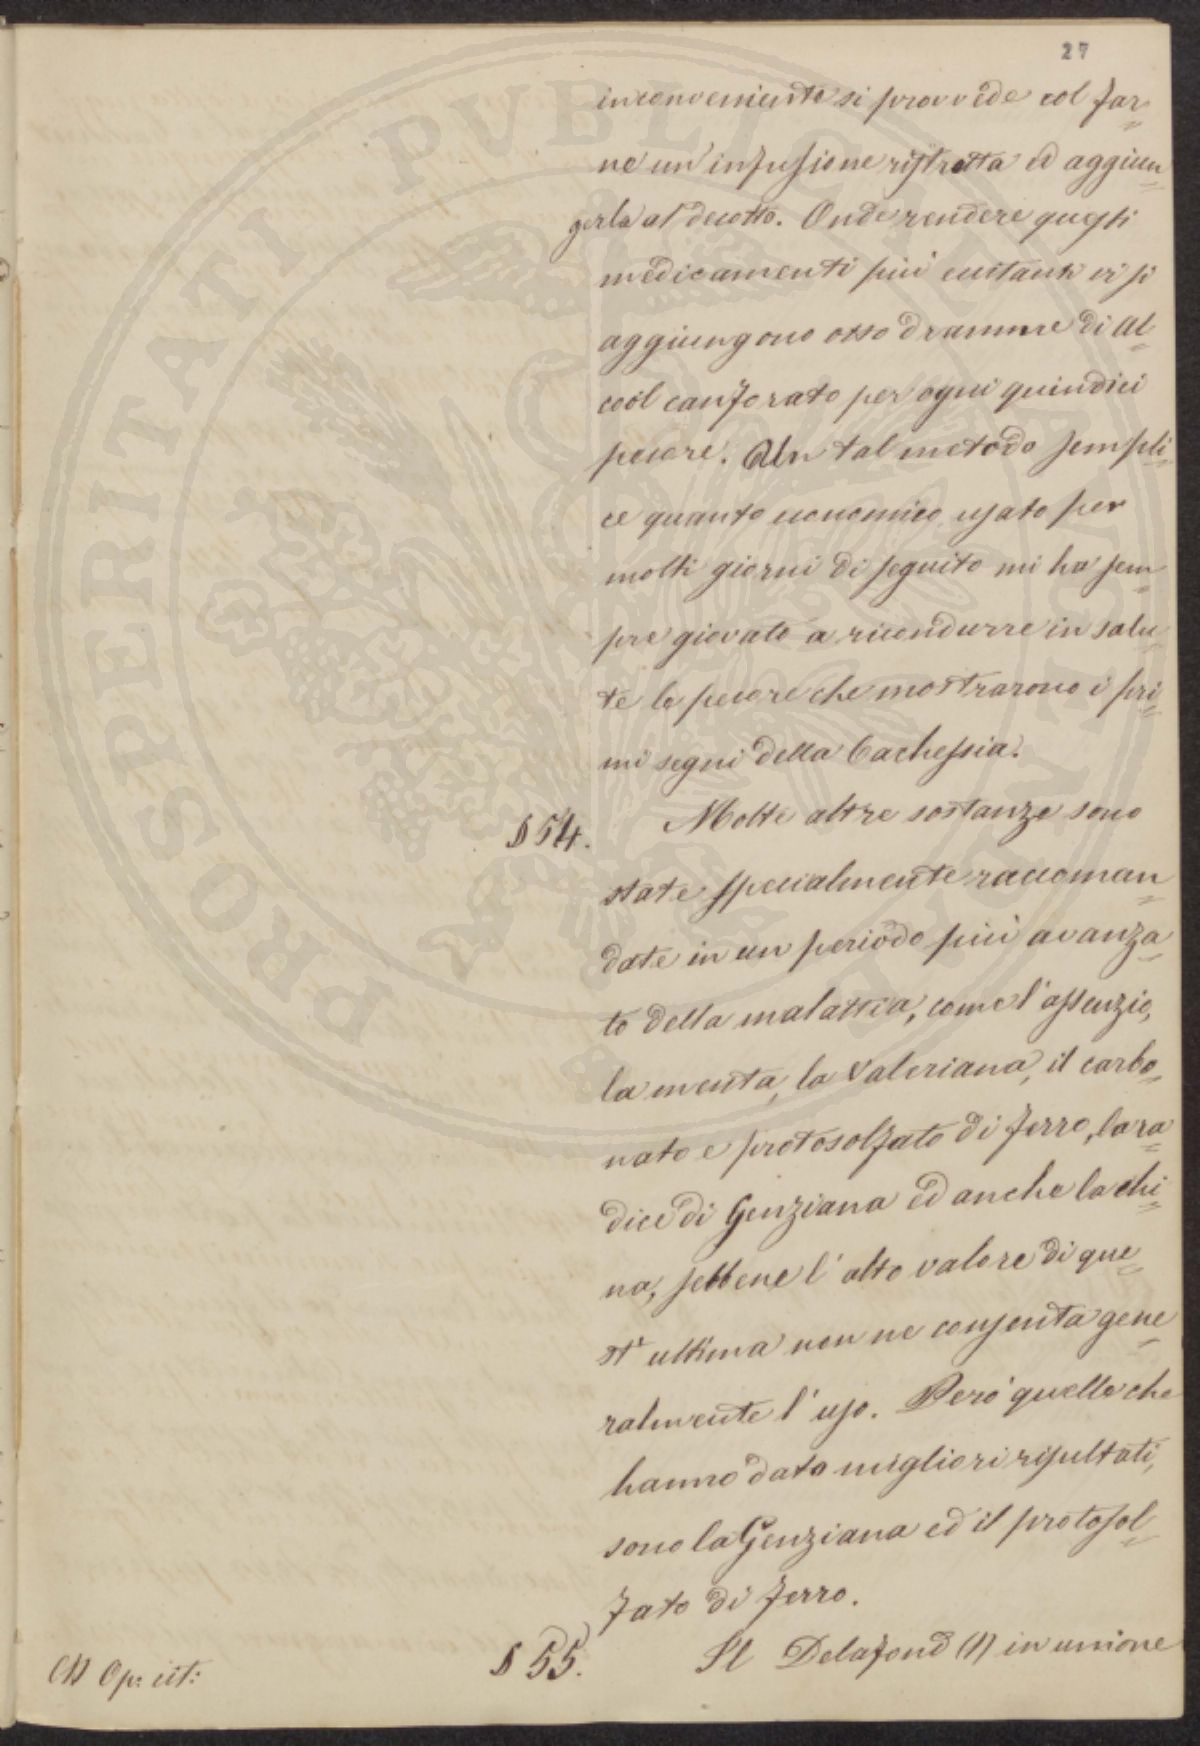 27
inconveniente si provvede col far=
ne un' infusione ristretta ed aggiun=
gerla al decotto. Onde rendere questi
medicamenti più eccitanti vi si
aggiungono otto dramme di al=
cool canforato per ogni quindici
pecore. Un tal metodo sempli=
ce quanto economico usato per
molti giorni di seguito mi ha sem=
pre giovato a ricondurre in salu=
te le pecore che mostrarono i pri=
mi segni della Cachessia.
§ 54. Molte altre sostanze sono
state specialmente raccoman=
date in un periodo più avanza=
to della malattia, come l'assenzio,
la menta, la Valeriana, il carbo=
nato e protosolfato di ferro, la ra=
dice di Genziana ed anche la chi=
na, sebbene l'alto valore di que=
st' ultima non ne consenta gene=
ralmente l'uso. Però quelle che
hanno dato migliori risultati,
sono la Genziana ed il protosol=
fato di ferro.
§ 55. Il Delafond (1) in unione
(1) Op: cit:
PROSPERITATI PUBLICAE